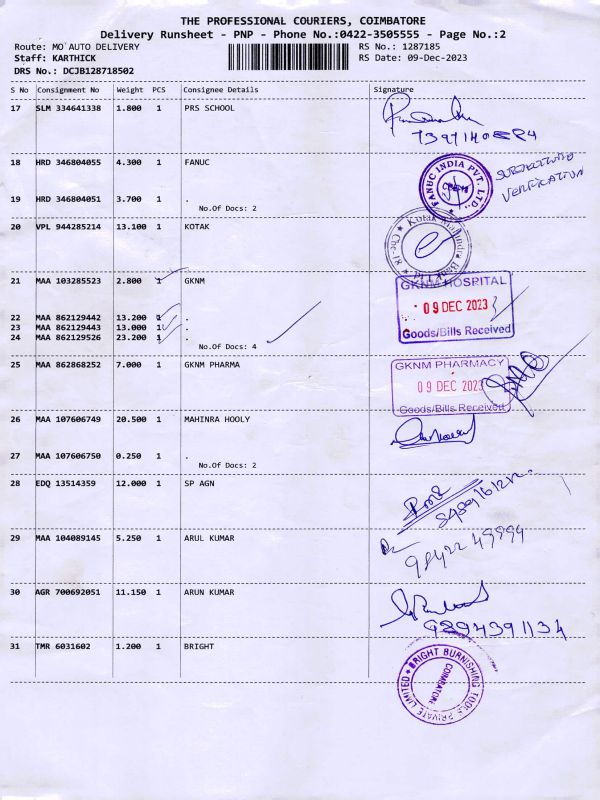 THE PROFESSIONAL COURIERS, COIMBATORE
Delivery Runsheet - PNP - Phone No.:0422-3505555 - Page No.:2
Route: MO`AUTO DELIVERY RS No.: 1287185
Staff: KARTHICK RS Date: 09-Dec-2023
DRS No.: DCJB128718502
S No Consignment No Weight PCS Consignee Details Signature
17 SLM 334641338 1.800 1 PRS SCHOOL
18 HRD 346804055 4.300 1 FANUC
FANUC INDIA PVT. LTD.
SUBJECT TO
VERIFICATION
19 HRD 346804051 3.700 1 .
No.Of Docs: 2
20 VPL 944285214 13.100 1 KOTAK
Kotak Mahindra Bank Ltd
21 MAA 103285523 2.800 1 GKNM
GKNM HOSPITAL
09 DEC 2023
Goods/Bills Received
22 MAA 862129442 13.200 1 .
23 MAA 862129443 13.000 1 .
24 MAA 862129526 23.200 1 .
No.Of Docs: 4
25 MAA 862868252 7.000 1 GKNM PHARMA
GKNM PHARMACY
09 DEC 2023
Goods/Bills Received
26 MAA 107606749 20.500 1 MAHINRA HOOLY
27 MAA 107606750 0.250 1 .
No.Of Docs: 2
28 EDQ 13514359 12.000 1 SP AGN
29 MAA 104089145 5.250 1 ARUL KUMAR
98422 49994
30 AGR 700692051 11.150 1 ARUN KUMAR
9894391134
31 TMR 6031602 1.200 1 BRIGHT
BRIGHT BURNISHING TOOLS PRIVATE LIMITED
COIMBATORE